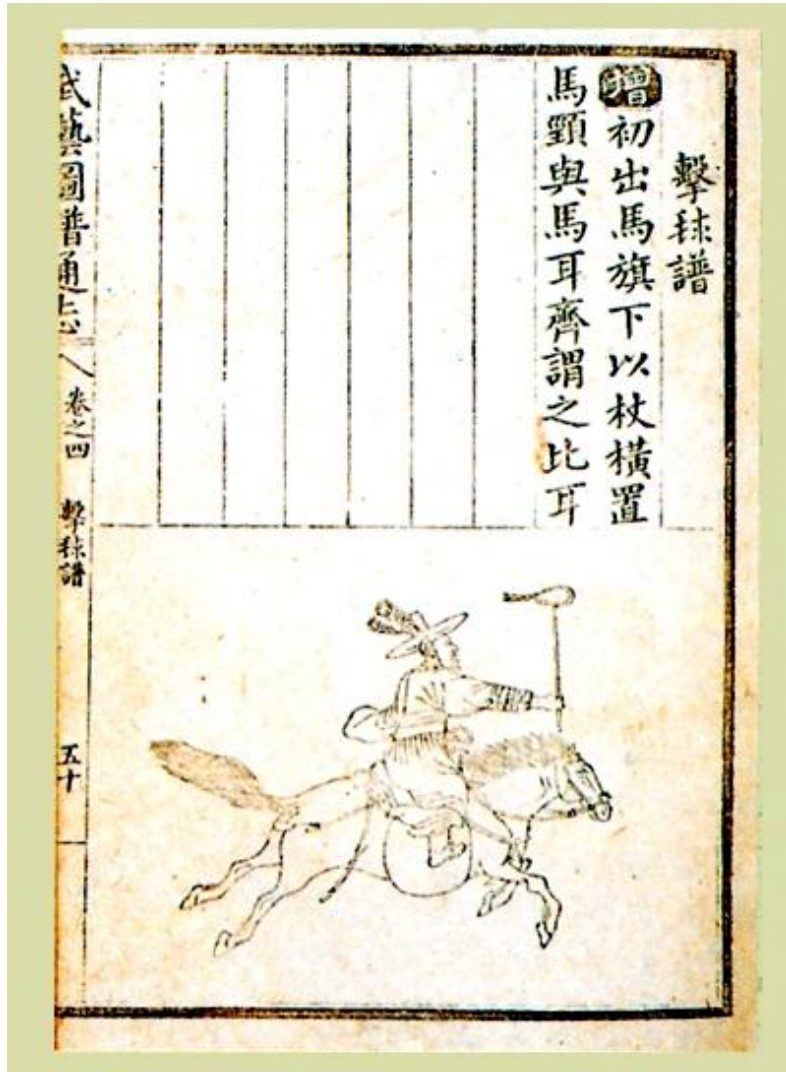 擊毬譜
增初出馬旗下以杖橫置
馬頸與馬耳齊謂之比耳
武藝圖譜通志
卷之四
擊毬譜
五十